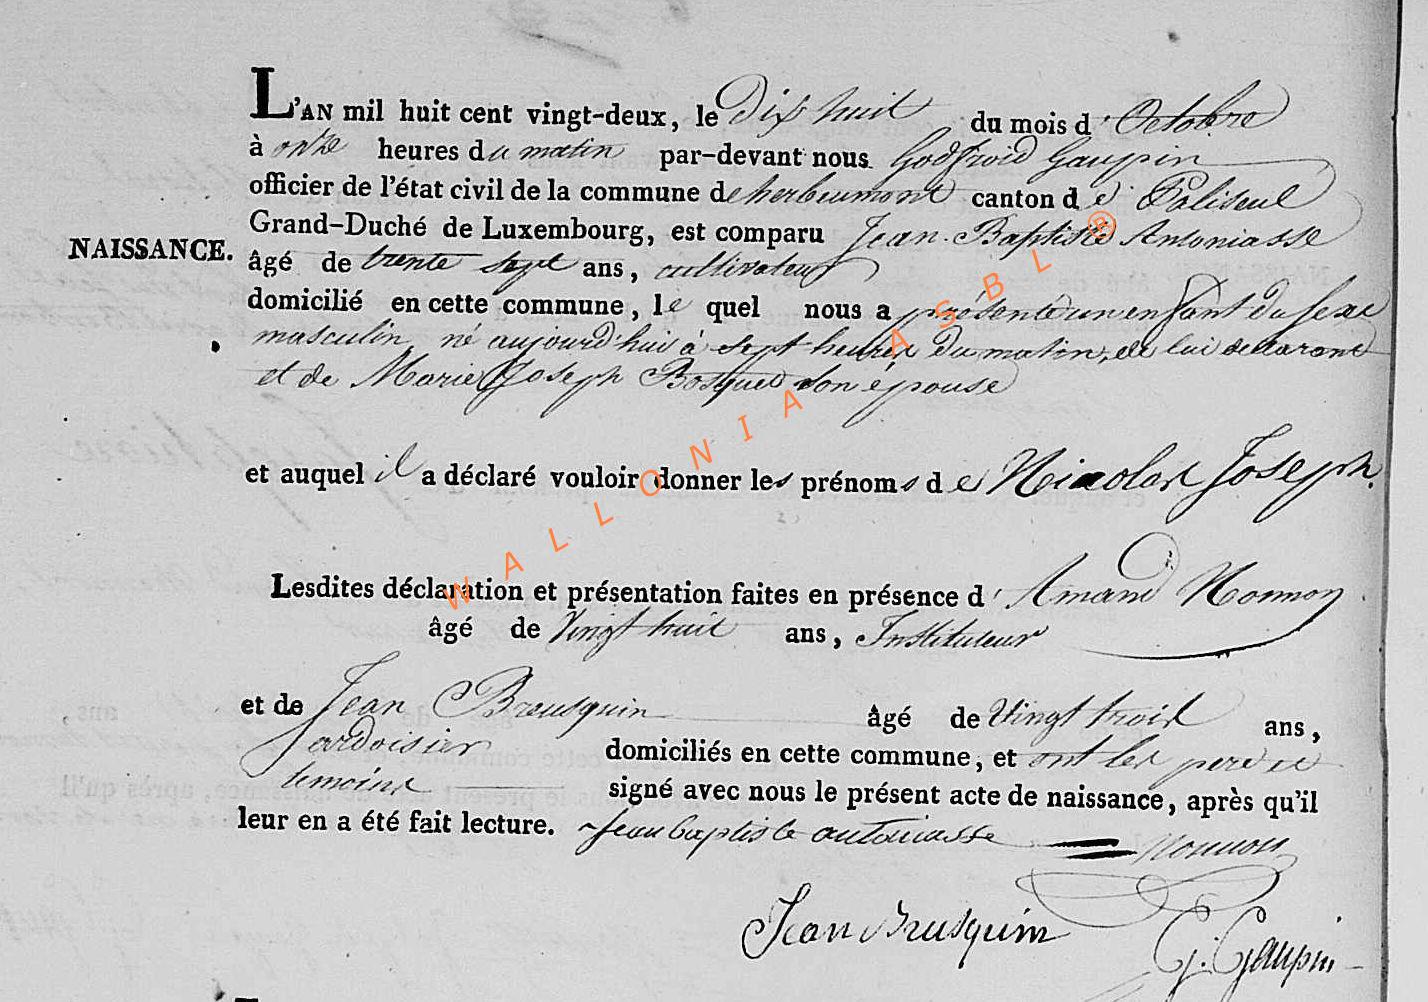 L'AN mil huit cent vingt-deux, le Dix huit du mois d'Octobre
à onze heures du matin par-devant nous Godfroid Gaupin
officier de l'état civil de la commune de herbeumont canton de Paliseul
Grand-Duché de Luxembourg, est comparu Jean-Baptiste Antoniasse
NAISSANCE. âgé de trente sept ans, cultivateur
domicilié en cette commune, le quel nous a présenté un enfant du sexe
masculin, né aujourd'hui à sept heures du matin, de lui declarant
et de Marie Joseph Bosquet son épouse
et auquel il a déclaré vouloir donner les prénoms de Nicolas Joseph.
Lesdites déclaration et présentation faites en présence d'Amand Nonnon
âgé de Vingt huit ans, Instituteur
et de Jean Brusquin âgé de Vingt trois ans,
ardoisier domiciliés en cette commune, et ont les pere et
temoins signé avec nous le présent acte de naissance, après qu'il
leur en a été fait lecture. Jean baptiste antoniasse Nonnon
Jean Brusquin G. Gaupin
WALLONIA ASBL ®